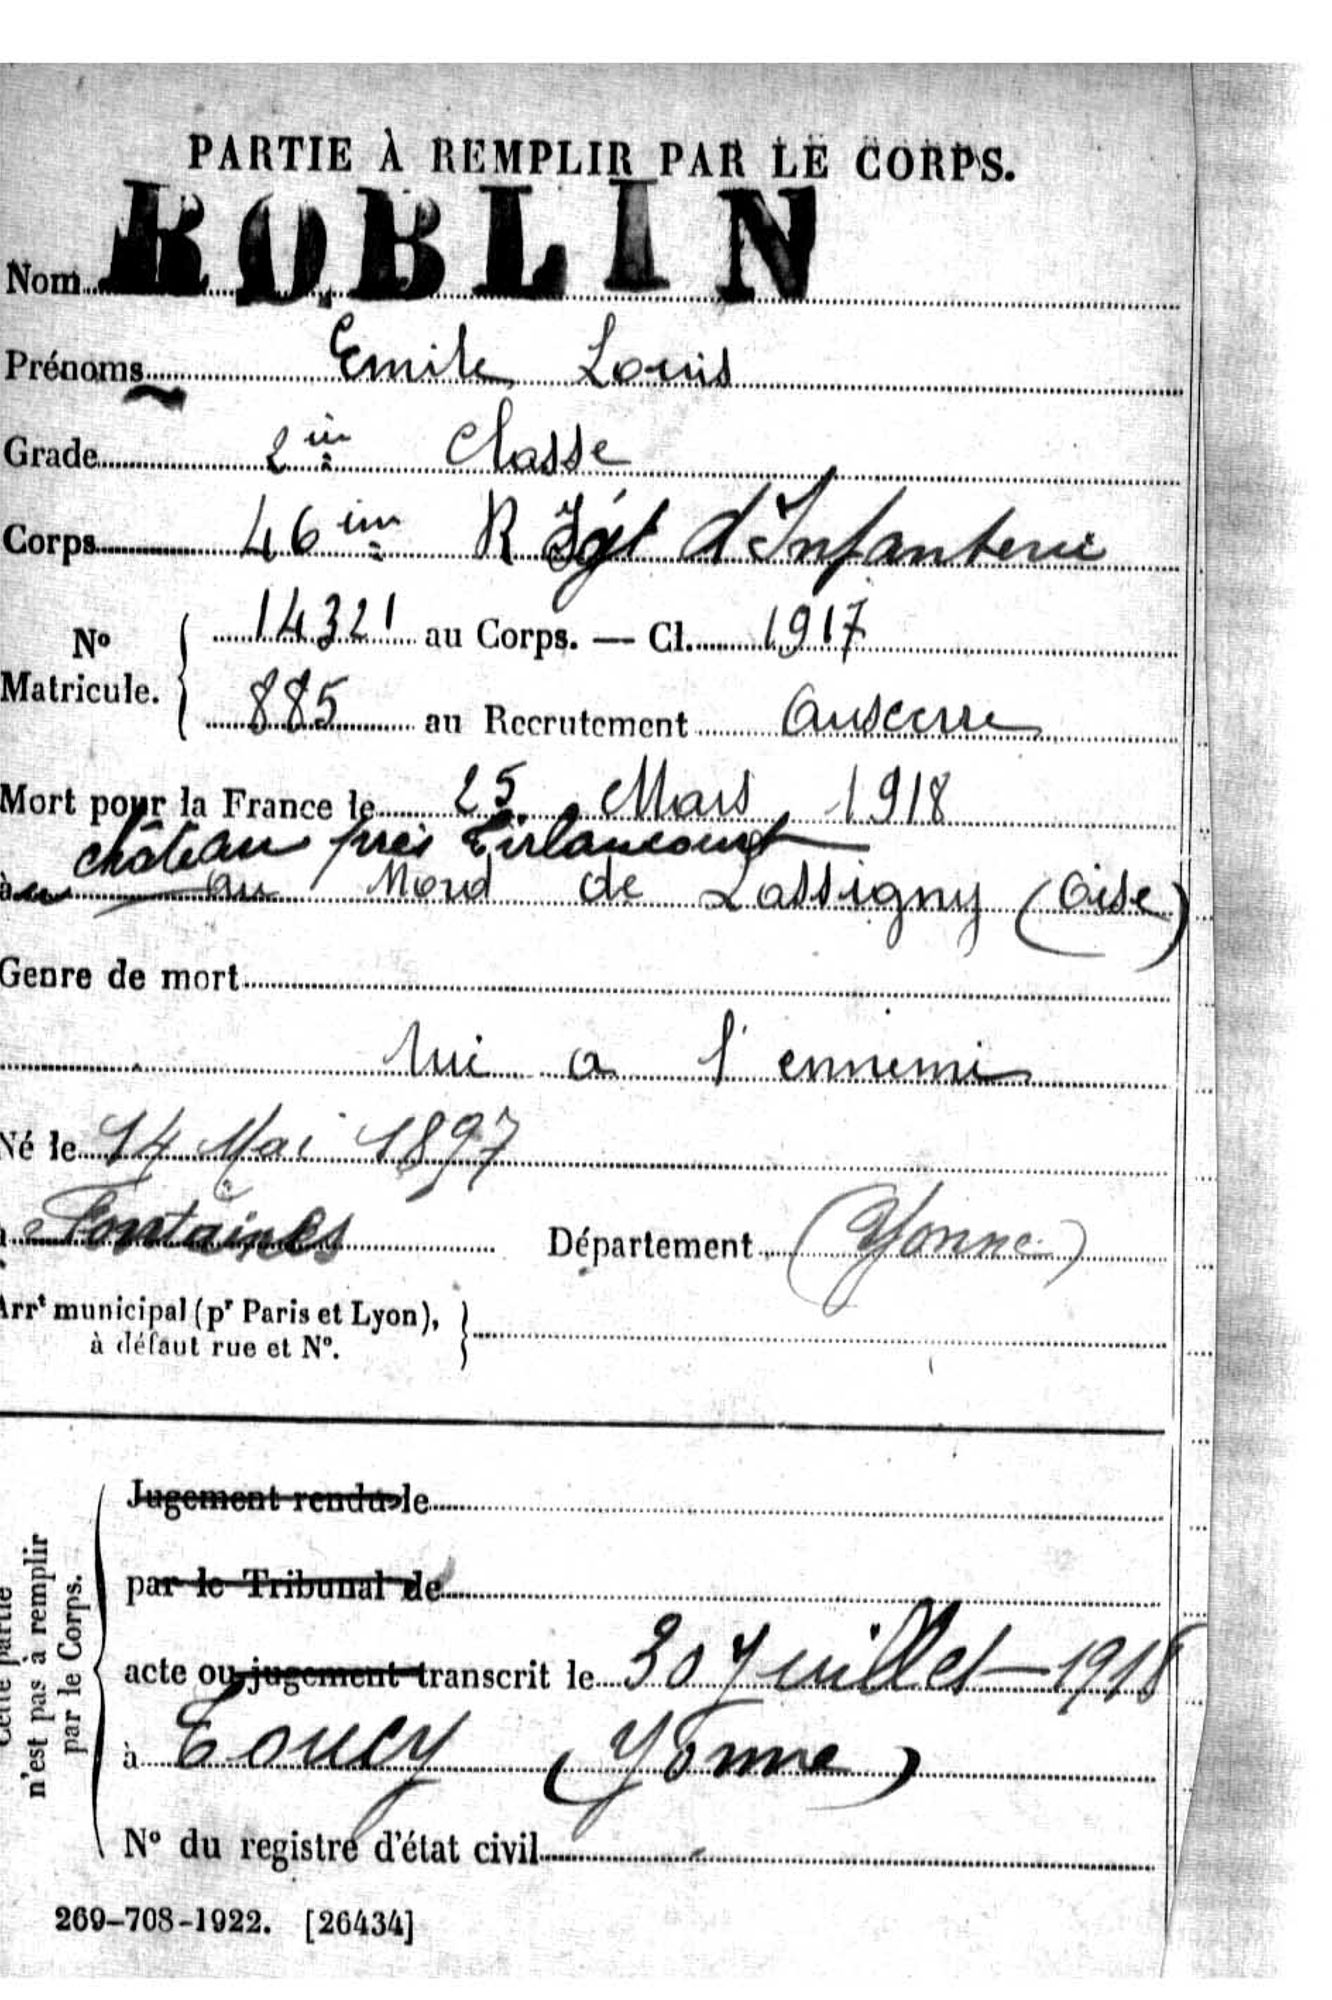 PARTIE À REMPLIR PAR LE CORPS.
Nom ROBLIN
Prénoms Emile Louis
Grade 2ème Classe
Corps 46ème R Igt d'Infanterie
No Matricule. 14321 au Corps. — Cl. 1917
885 au Recrutement Auxerre
Mort pour la France le 25 Mars 1918
château près
à au Nord de Lassigny (Oise)
Genre de mort
tué a l'ennemi
Né le 14 Mai 1897
à Fontaines Département (Yonne)
Arrt municipal (pr Paris et Lyon),
à défaut rue et No.
Cette partie
n'est pas à remplir
par le Corps.
Jugement rendu le
par le Tribunal de
acte ou jugement transcrit le 30 Juillet 1918
à Toucy (Yonne)
No du registre d'état civil
269-708-1922. [26434]